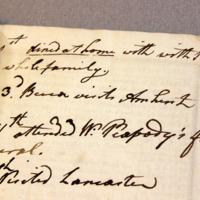 st dined at home with with
whole family.
3d Becca visits Amherst
th attended Wm Peapody's f
eral.
th Visited Lancaster